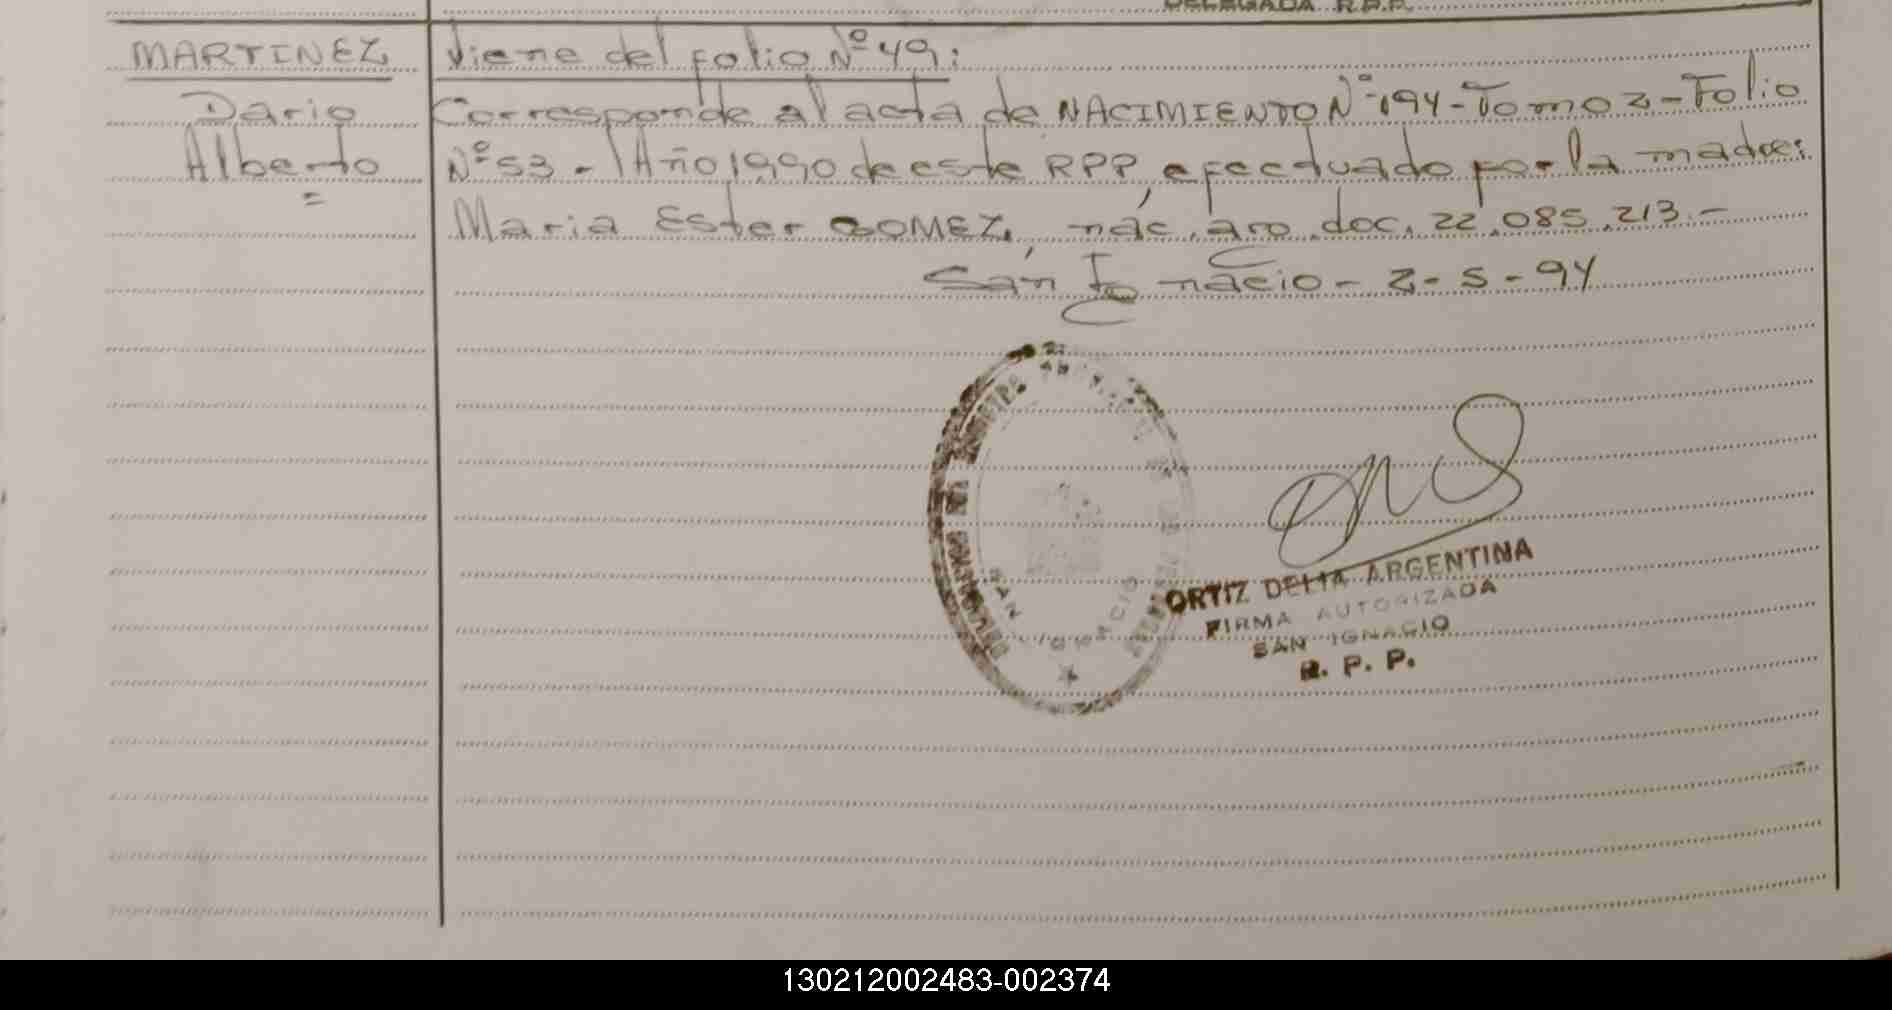 DELEGADA R.P.P.
MARTINEZ
Dario
Alberto
=
Viene del folio Nº 49:
Corresponde al acta de NACIMIENTO Nº 194 - Tomo 2 - Folio
Nº 53 - Año 1990 de este RPP, efectuado por la madre:
Maria Ester GOMEZ, nac. arg. doc. 22.085.213.-
San Ignacio - 2-5-94
SAN IGNACIO
ORTIZ DELIA ARGENTINA
FIRMA AUTORIZADA
SAN IGNACIO
R. P. P.
130212002483-002374